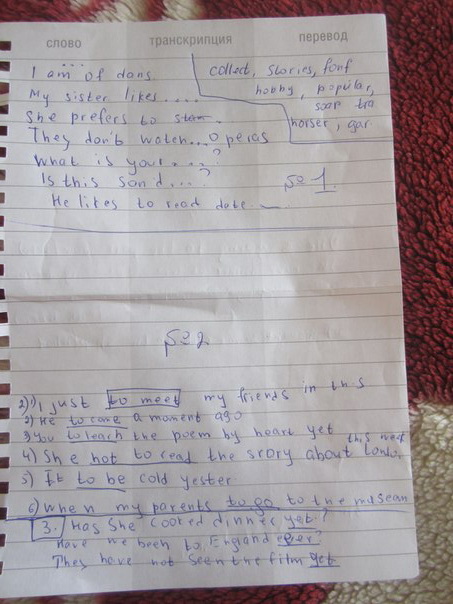 слово транскрипция перевод
I am ... of dans.
My sister likes....
She prefers to
They don't watch...operas
What is your....?
Is this sand...?
He likes to read date
collect, stories, fonf
hobby, popular,
soap
horser,
№1.
№2
2) 1) I just to meet my friends in this
2) He to come a moment ago
3) You to teach the poem by heart yet
4) She not to read the story about London this week
5) It to be cold yester.
6) When my parents to go to the musean
3. Has she cooked dinner yet?
Have we been to England ever?
They have not seen the film yet